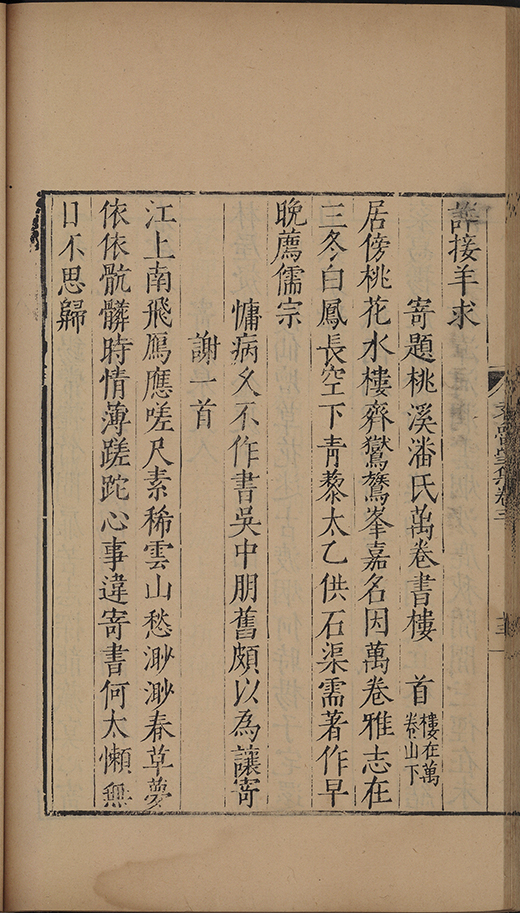 許接羊求
寄題桃溪潘氏萬卷書樓 首
樓在萬
卷山下
居傍桃花水樓齊鸑鷟峯嘉名因萬卷雅志在
三冬白鳳長空下青藜太乙供石渠需著作早
晚薦儒宗
慵病久不作書吳中朋舊頗以為讓寄
謝一首
江上南飛鴈應嗟尺素稀雲山愁渺渺春草夢
依依骯髒時情薄蹉跎心事違寄書何太懶無
日不思歸